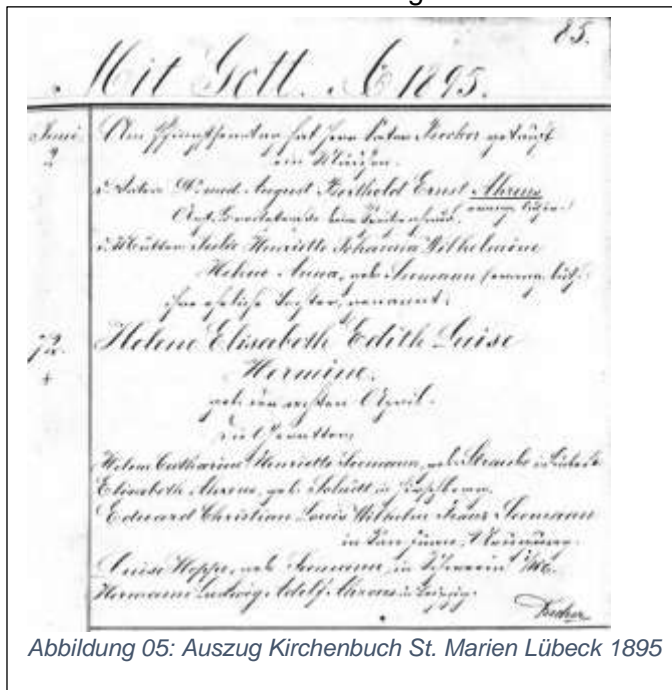 85.
Mit Gott. A 1895.
Juni
2
Am hat Herr Pastor getauft
ein Mädchen.
d. Vater Dr med. August Berthold Ernst Ahrens
d. Mutter Julie Henriette Johanna Wilhelmine
Helene Anna, geb. Seemann (evang. luth.
ihre eheliche Tochter, genannt:
72.
Helene Elisabeth Edith Luise
Hermine.
geb. den April.
die Gevattern
Helene Catharina Henriette Seemann, geb. in Lübeck.
Elisabeth Ahrens, geb. in
Edward Christian Louis Wilhelm Franz Seemann
in
Luise Hoppe, geb. Seemann, in Schwerin i/M.
Hermann Ludwig Adolf Ahrens in Leipzig.
Abbildung 05: Auszug Kirchenbuch St. Marien Lübeck 1895